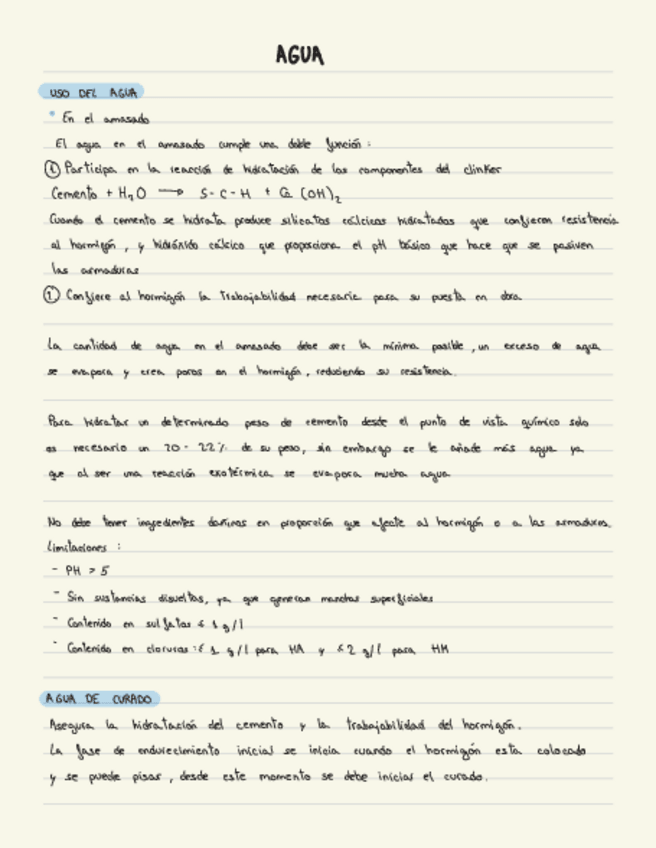 AGUA
USO DEL AGUA
• En el amasado
El agua en el amasado cumple una doble función:
① Participa en la reacción de hidratación de los componentes del clinker
Cemento + H₂O → S-C-H + Ca (OH)₂
Cuando el cemento se hidrata produce silicatos cálcicos hidratados que confieren resistencia
al hormigón, y hidróxido cálcico que proporciona el pH básico que hace que se pasiven
las armaduras
② Confiere al hormigón la trabajabilidad necesaria para su puesta en obra
La cantidad de agua en el amasado debe ser la mínima posible, un exceso de agua
se evapora y crea poros en el hormigón, reduciendo su resistencia.
Para hidratar un determinado peso de cemento desde el punto de vista químico solo
es necesario un 20 - 22% de su peso, sin embargo se le añade más agua ya
que al ser una reacción exotérmica se evapora mucha agua
No debe tener ingredientes dañinos en proporción que afecte al hormigón o a las armaduras.
Limitaciones:
- PH > 5
- Sin sustancias disueltas, ya que generan manchas superficiales
- Contenido en sulfatos ≤ 1 g/l
- Contenido en cloruros: ≤ 1 g/l para HA y ≤ 2 g/l para HM
AGUA DE CURADO
Asegura la hidratación del cemento y la trabajabilidad del hormigón.
La fase de endurecimiento inicial se inicia cuando el hormigón esta colocado
y se puede pisar, desde este momento se debe iniciar el curado.